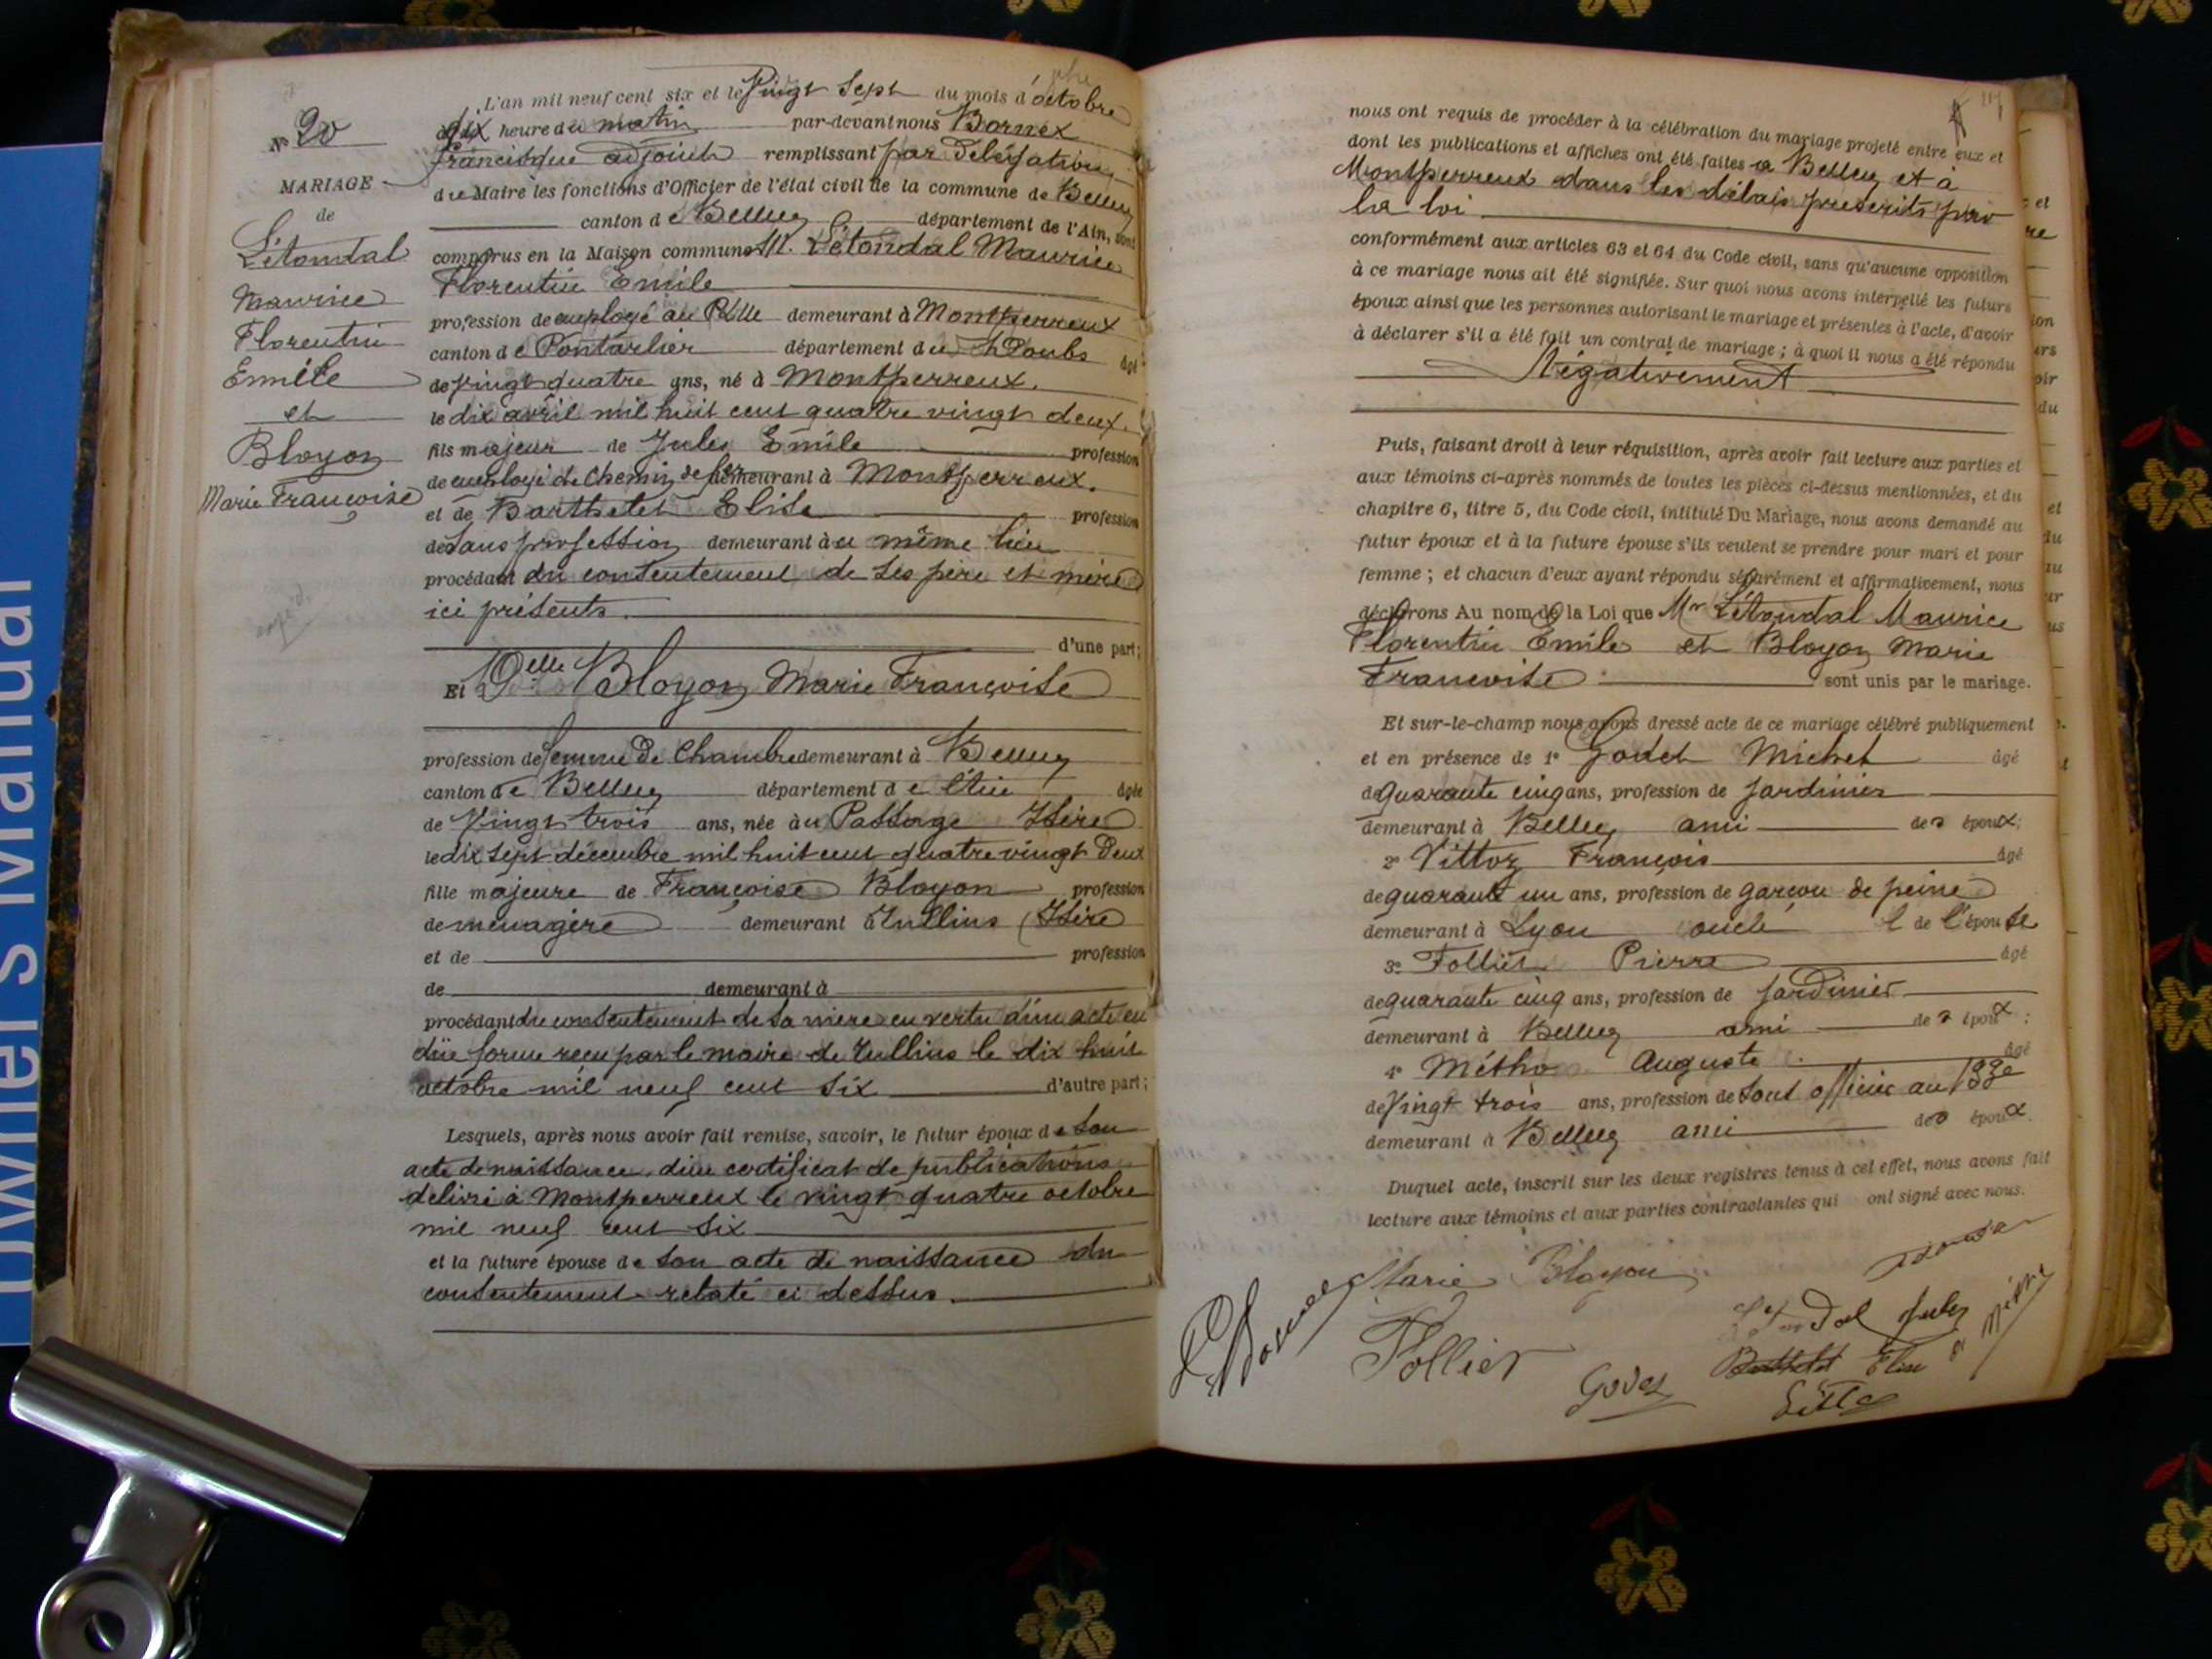 Owner's Manual
N° 20
MARIAGE
de
Létondal
Maurice
Florentin
Emile
et
Bloyon
Marie Françoise
L'an mil neuf cent six et le Vingt Sept du mois d'octobre
à dix heure du matin par-devant nous Bornex
francisque adjoint remplissant par délégation
du Maire les fonctions d'Officier de l'état civil de la commune de Belley
canton de Belley département de l'Ain, sont
comparus en la Maison commune M. Létondal Maurice
Florentin Emile
profession de employé au demeurant à Montperreux
canton de Pontarlier département du Doubs âgé
de vingt quatre ans, né à Montperreux.
le dix avril mil huit cent quatre vingt deux.
fils majeur de Jules Emile profession
de employé de Chemin de fer demeurant à Montperreux.
et de Barthelet Elise profession
de Sans profession demeurant à u même lieu
procédant du consentement de ses père et mère
ici présents.
d'une part;
Et Delle Bloyon Marie Françoise
profession de femme de Chambre demeurant à Belley
canton de Belley département de l'Ain âgée
de Vingt trois ans, née à u Passage Isère
le dix sept décembre mil huit cent quatre vingt deux
fille majeure de Françoise Bloyon profession
de ménagère demeurant à Tullins (Isère
et de profession
de demeurant à
procédant du consentement de sa mère en vertu d'un acte en
düe forme reçu par le maire de Tullins le dix huit
octobre mil neuf cent six d'autre part;
Lesquels, après nous avoir fait remise, savoir, le futur époux de son
acte de naissance, d'un certificat de publications
délivré à Montperreux le vingt quatre octobre
mil neuf cent six
et la future épouse de son acte de naissance du
consentement relaté ci dessus.
nous ont requis de procéder à la célébration du mariage projeté entre eux et
dont les publications et affiches ont été faites à Belley et à
Montperreux dans les délais prescrits par
la loi
conformément aux articles 63 et 64 du Code civil, sans qu'aucune opposition
à ce mariage nous ait été signifiée. Sur quoi nous avons interpellé les futurs
époux ainsi que les personnes autorisant le mariage et présentes à l'acte, d'avoir
à déclarer s'il a été fait un contrat de mariage; à quoi il nous a été répondu
Négativement
Puis, faisant droit à leur réquisition, après avoir fait lecture aux parties et
aux témoins ci-après nommés de toutes les pièces ci-dessus mentionnées, et du
chapitre 6, titre 5, du Code civil, intitulé Du Mariage, nous avons demandé au
futur époux et à la future épouse s'ils veulent se prendre pour mari et pour
femme; et chacun d'eux ayant répondu séparément et affirmativement, nous
déclarons Au nom de la Loi que Mr Létondal Maurice
Florentin Emile et Bloyon Marie
Françoise sont unis par le mariage.
Et sur-le-champ nous avons dressé acte de ce mariage célébré publiquement
et en présence de 1° Godet Michel âgé
de quarante cinq ans, profession de Jardinier
demeurant à Belley ami des époux;
2° Vittoz François âgé
de quarante un ans, profession de garçon de peine
demeurant à Lyon oncle de l'épouse
3° Folliet Pierre âgé
de quarante cinq ans, profession de Jardinier
demeurant à Belley ami des époux;
4° Auguste âgé
de Vingt trois ans, profession de Sous officier au 133e
demeurant à Belley ami des époux.
Duquel acte, inscrit sur les deux registres tenus à cet effet, nous avons fait
lecture aux témoins et aux parties contractantes qui ont signé avec nous.
Marie Bloyon
Jules
Folliet
Godet
Barthelet Elise